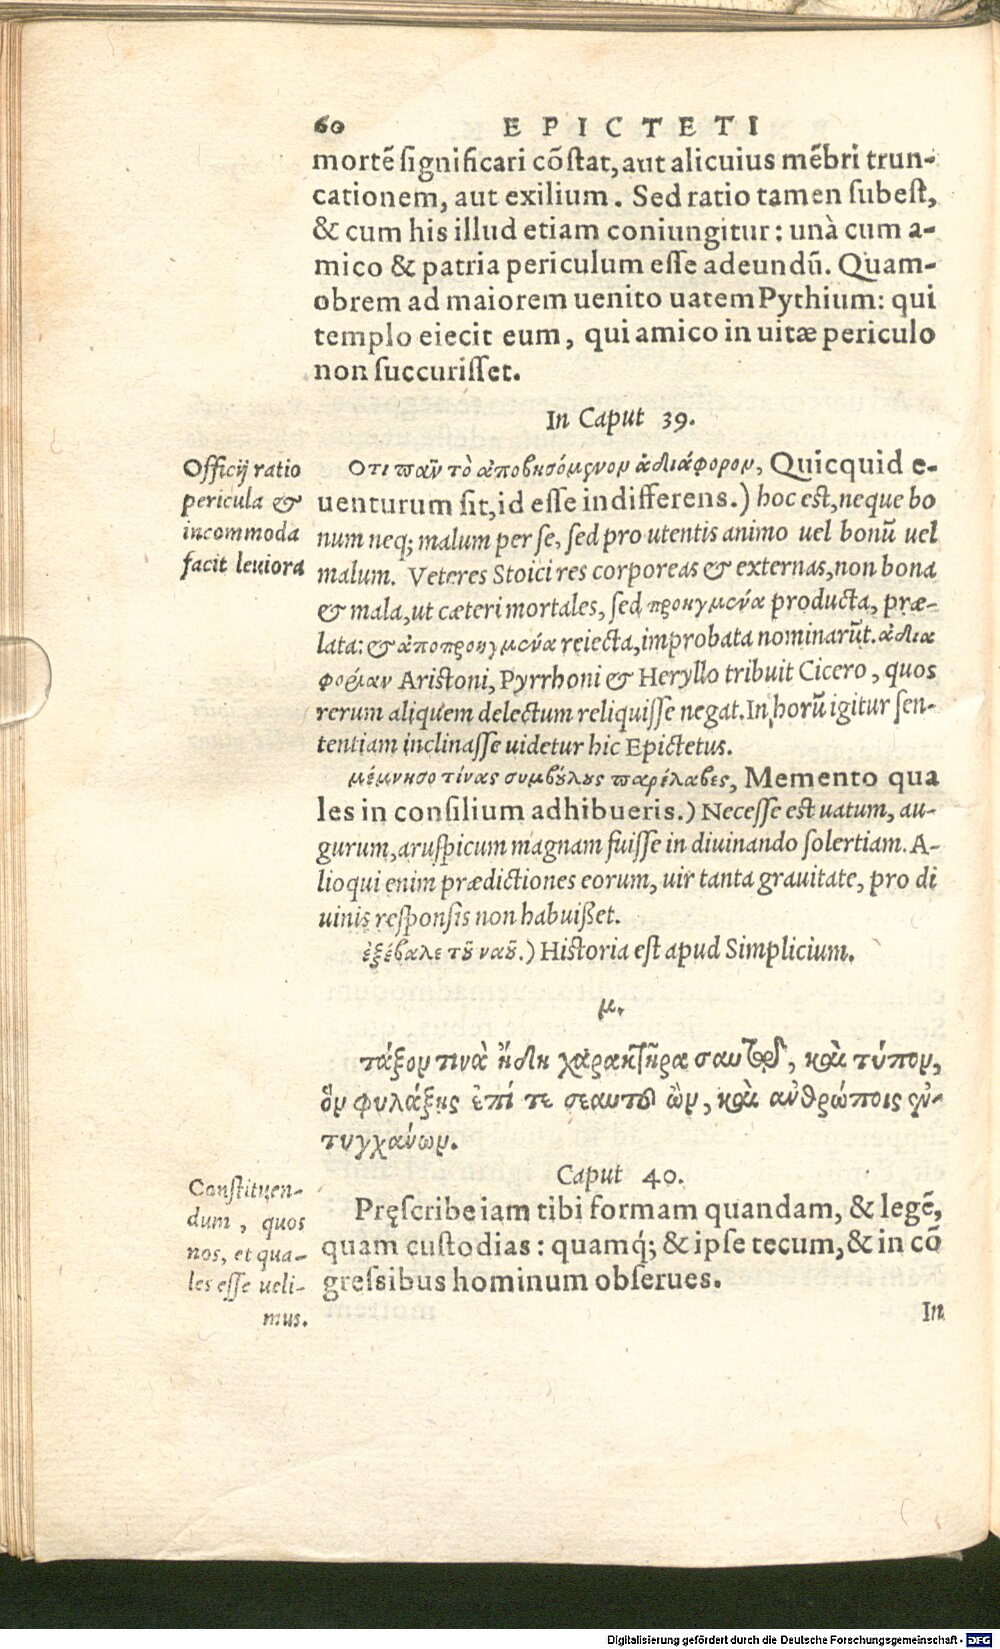 60 EPICTETI
mortē ſignificari cōſtat, aut alicuius mēbri trun-
cationem, aut exilium. Sed ratio tamen ſubeſt,
& cum his illud etiam coniungitur: unà cum a-
mico & patria periculum eſſe adeundū. Quam-
obrem ad maiorem uenito uatem Pythium: qui
templo eiecit eum, qui amico in uitæ periculo
non ſuccuriſſet.
In Caput 39.
Officij ratio
pericula &
incommoda
facit leuiora
Οτι παῦν τὸ ἀποβησόμενον ἀδιάφορον, Quicquid e-
uenturum ſit, id eſſe indifferens.) hoc eſt, neque bo
num neq; malum per ſe, ſed pro utentis animo uel bonū uel
malum. Veteres Stoici res corporeas & externas, non bona
& mala, ut cæteri mortales, ſed προηγμένα producta, præ-
lata: & ἀποπροηγμένα reiecta, improbata nominarūt. ἀδια
φορίαν Ariſtoni, Pyrrhoni & Heryllo tribuit Cicero, quos
rerum aliquem delectum reliquiſſe negat. In horū igitur ſen-
tentiam inclinaſſe uidetur hic Epictetus.
μέμνησο τίνας συμβούλους παρέλαβες, Memento qua
les in conſilium adhibueris.) Neceſſe eſt uatum, au-
gurum, aruſpicum magnam fuiſſe in diuinando ſolertiam. A-
lioqui enim prædictiones eorum, uir tanta grauitate, pro di
uinis reſponſis non habuißet.
ἐξέβαλε τοῦ ναοῦ.) Hiſtoria eſt apud Simplicium.
μ.
τάξον τινὰ ἤδη χαρακτῆρα σαυτῷ, καὶ τύπον,
ὃν φυλάξῃς ἐπί τε σεαυτοῦ ὢν, καὶ ἀνθρώποις ἐν-
τυγχάνων.
Caput 40.
Conſtituen-
dum, quos
nos, et qua-
les eſſe ueli-
mus.
Pręſcribe iam tibi formam quandam, & legē,
quam cuſtodias: quamq́; & ipſe tecum, & in cō
greſsibus hominum obſerues.
In
Digitalisierung gefördert durch die Deutsche Forschungsgemeinschaft - DFG